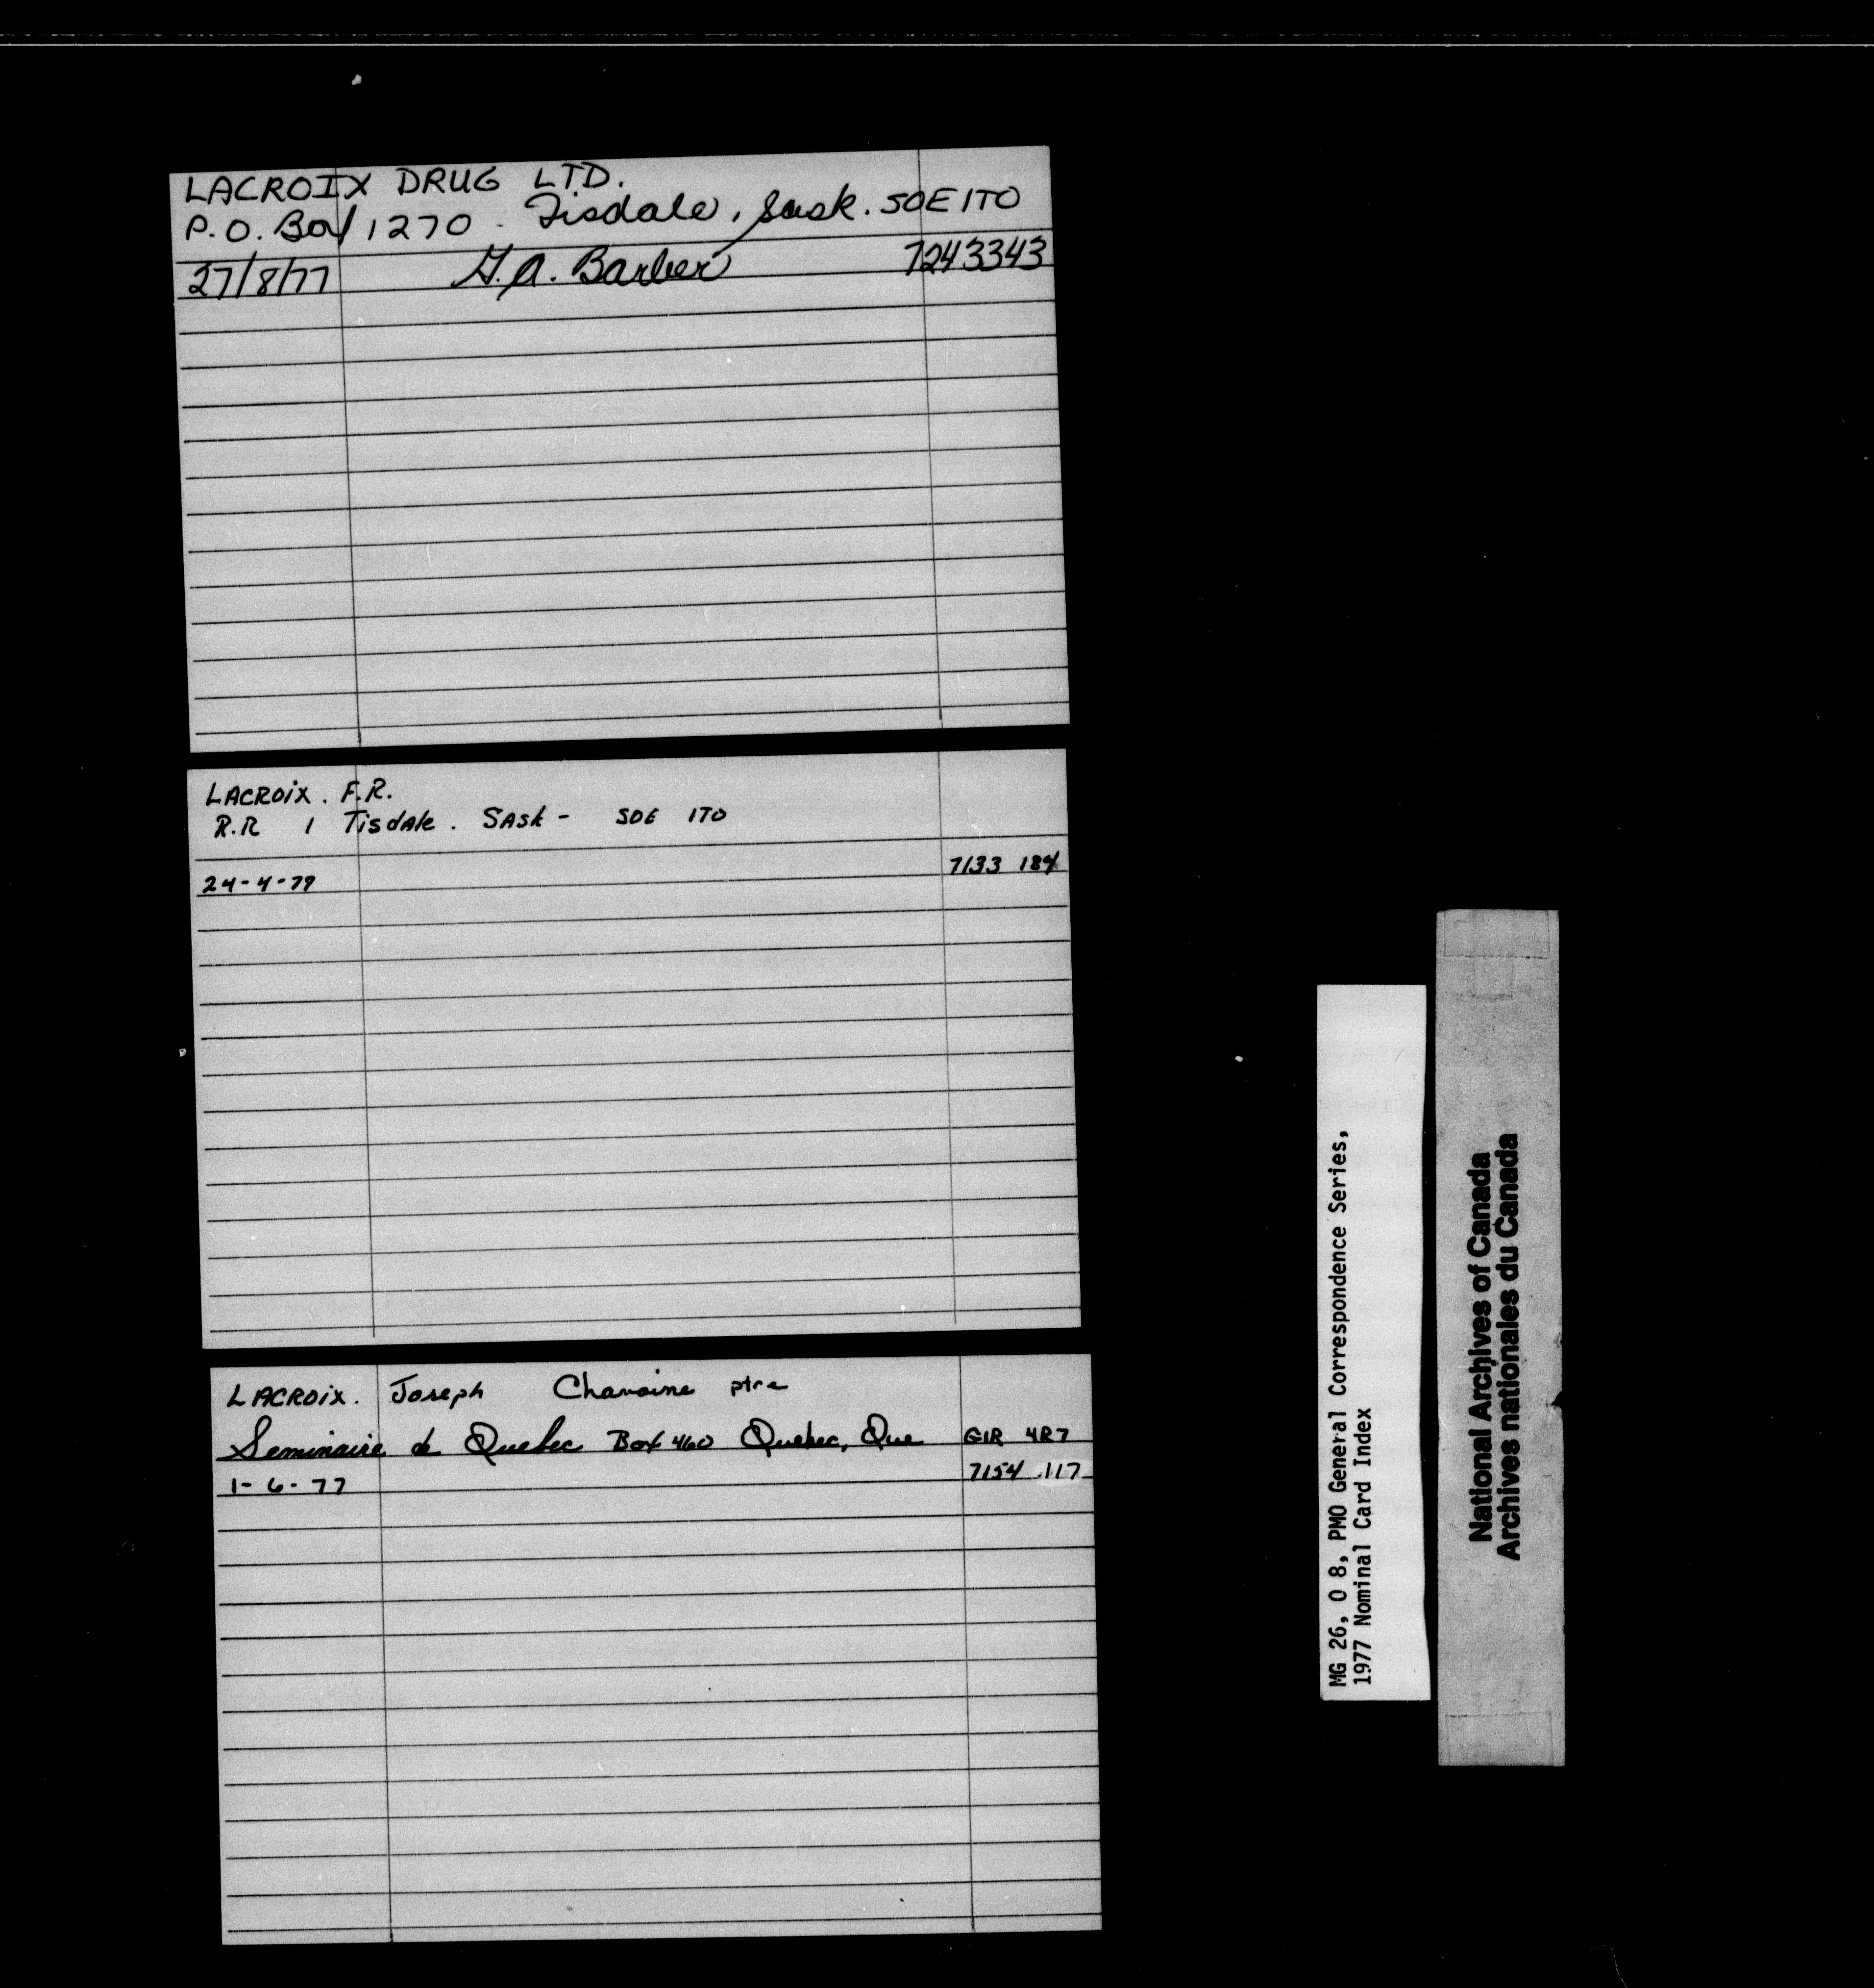 LACROIX DRUG LTD.
P.O. Box 1270 - Tisdale, Sask. S0E 1T0
27/8/77 G.A. Barber 7243343
LACROIX. F.R.
R.R 1 Tisdale. SASK - S0E 1T0
24-4-79 7133 184
LACROIX. Joseph Chanoine ptre
Seminaire de Quebec Box 460 Quebec, Que G1R 4R7
1-6-77 7154 .117
MG 26, O 8, PMO General Correspondence Series,
1977 Nominal Card Index
National Archives of Canada
Archives nationales du Canada